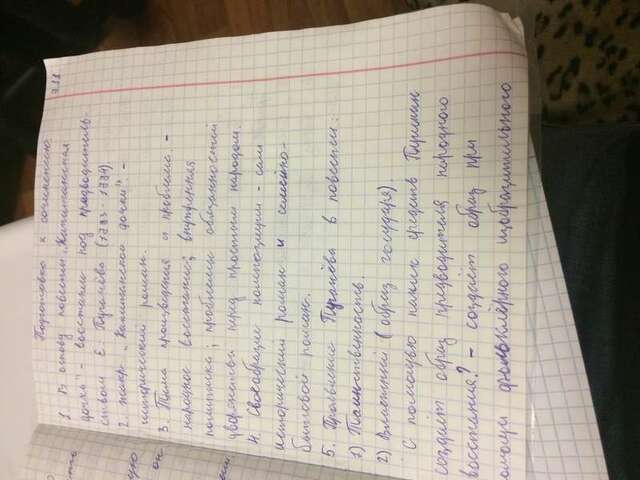 Подготовка к сочинению
9.11
1. В основу повести „Капитанская
дочка" - восстание под предводитель-
ством Е. Пугачёва (1773 - 1774).
2. Жанр „Капитанской дочки" -
исторический роман.
3. Тема произведения и проблема -
народное восстание; внутренняя
политика; проблемы обязанностей
дворянства перед простым народом.
4. Своеобразие композиции - сам
исторический роман и семейно-
бытовой роман.
5. Проявление Пугачёва в повести:
1) Таинственность.
2) Властный (образ государя).
С помощью каких средств Пушкин
создаёт образ предводителя народного
восстания? - создаёт образ при
омощи фольклёрного изобразительного